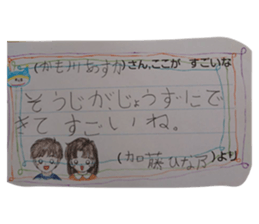 (かも川あすか)さん、ここが すごいな
そうじが、じょうずにで
きて すごいね。
(加藤ひな乃)より